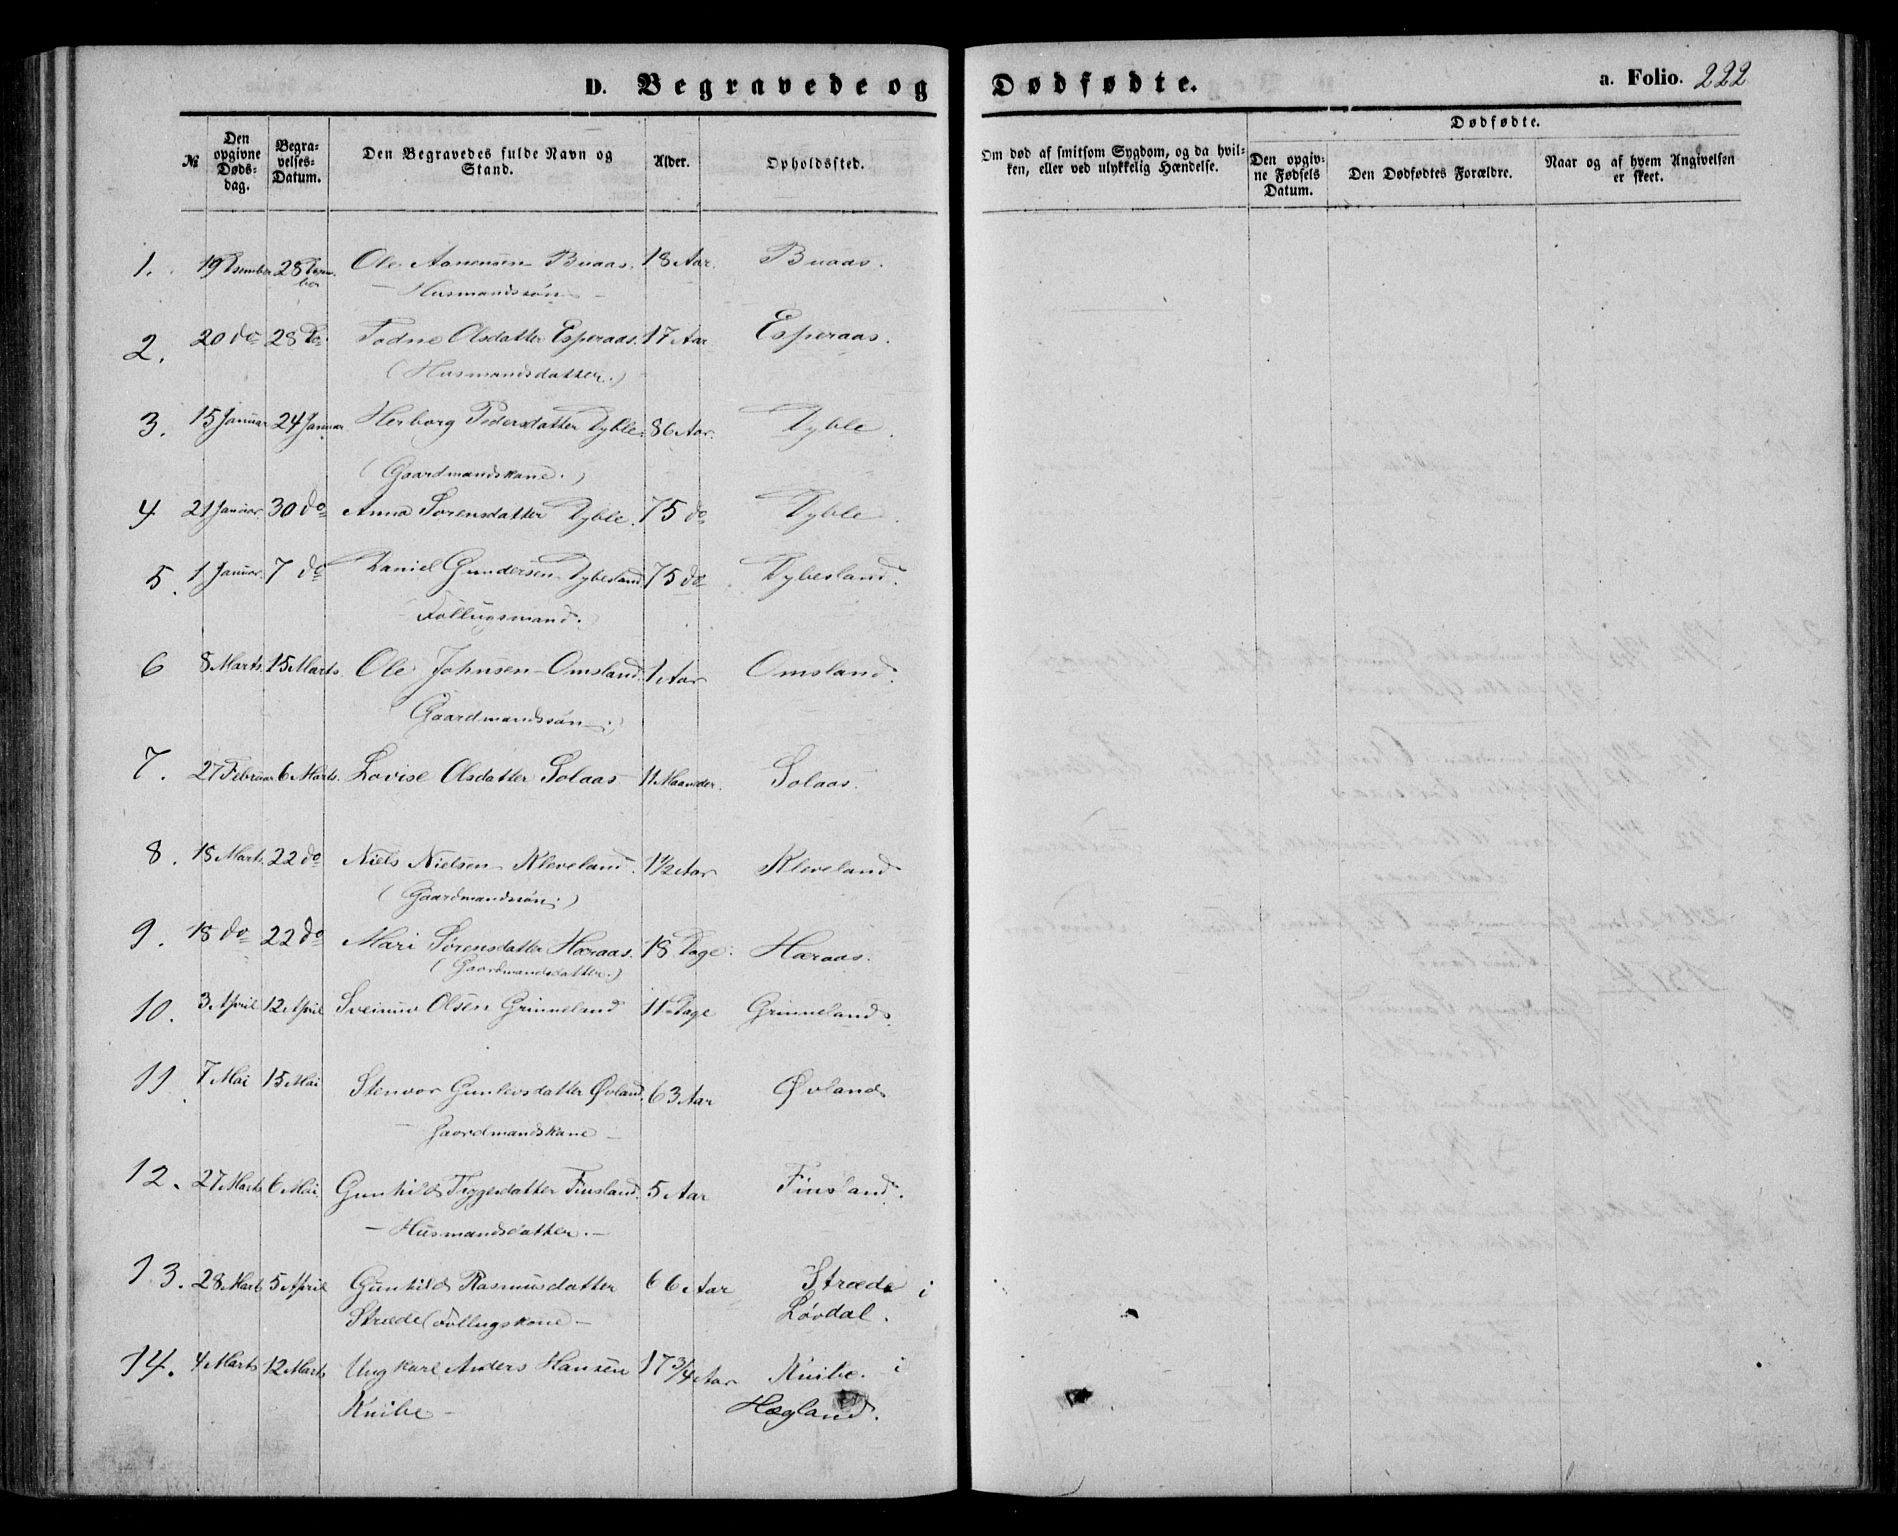 D. Begravede og Dødfødte. a. Folio. 222
№ Den opgivne Døds-dag. Begra-velses-Datum. Den Begravedes fulde Navn og Stand. Alder. Opholdssted. Om død af smitsom Sygdom, og da hvil-ken, eller ved ulykkelig Hændelse. Dødfødte. Den opgiv-ne Fødsels Datum. Den Dødfødtes Forældre. Naar og af hvem Angivelsen er skeet.
1. 19 Desember 28 Desember Ole Aanensen Buaas. 18 Aar. Buaas.
– Husmandssøn –
2. 20 do 28 Do. Tadne Olsdatter Esperaas. 17 Aar Esperaas.
(Husmandsdatter.)
3. 15 Januar 24 Januar Herborg Pedersdatter Dyble. 86 Aar. Dyble.
(Gaardmandskone.)
4 21 Januar. 30 do Anna Sorensdatter Dyble. 75 do Dyble.
5. 1 Januar. 7 do Daniel Gundersen Dybesland 75 do Dybesland.
Follugsmand.
6 8 Marts. 15 Marts. Ole Johnsen Omsland. 1 Aar Omsland.
(Gaardmandssøn.)
7. 27 Februar 6 Marts. Lovise Olsdatter Solaas 11 Maaneder. Solaas.
8. 15 Marts. 22 do Niels Nielsen Kleveland. 1 1/2 Aar Kleveland
(Gaardmandssøn.)
9. 18 do 22 do Mari Sørensdatter Hæraas. 18 Dage. Hæraas.
(Gaardmandsdatter.)
10. 3 April 12 April Sveinuv Olsen Grimeland 11 Dage Grimeland.
11. 7 Mai 15 Mai Stenvor Gunlevsdatter Øvland. 63 Aar Øvland
– Gaardmandskone –
12. 27 Marts 6 Mai Gunhild Tyggesdatter Finsland. 5 Aar Finsland.
– Husmandsdatter. –
13. 28 Marts 5 April Gunhild Rasmusdatter 66 Aar Stræde i
Stræde (Follugskone – Løvdal.
14. 4 Marts 12 Marts Ungkarl Anders Hansen 17 3/4 Aar Knibe. i
Knibe – Hægland.